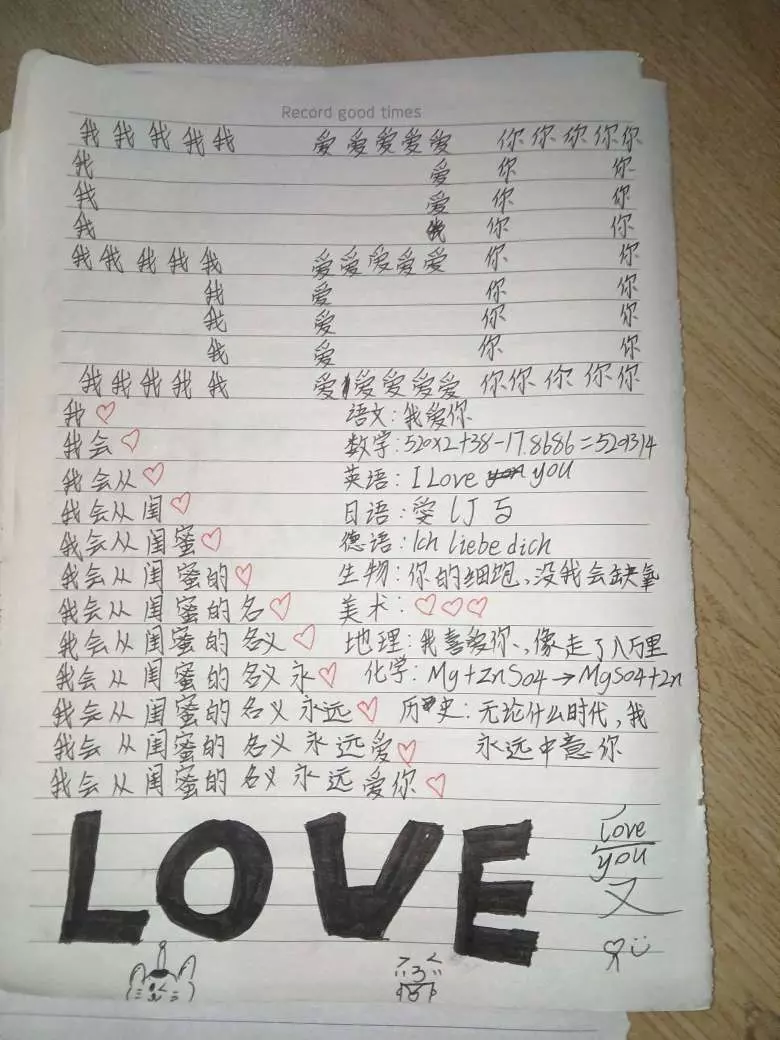 Record good times
我 我 我 我 我 爱 爱 爱 爱 爱 你 你 你 你 你
我 爱 你 你
我 爱 你 你
我 你 你
我 我 我 我 我 爱 爱 爱 爱 爱 你 你
我 爱 你 你
我 爱 你 你
我 爱 你 你
我 我 我 我 我 爱 爱 爱 爱 爱 你 你 你 你 你
我♡ 语文:我爱你
我会♡ 数学:520×2+38-17.8686=5201314
我会从♡ 英语:I Love you
我会从闺♡ 日语:
我会从闺蜜♡ 德语:Ich liebe dich
我会从闺蜜的♡ 生物:你的细胞、没我会缺氧
我会从闺蜜的名♡ 美术:♡♡♡
我会从闺蜜的名义♡ 地理:我喜爱你、像走了八万里
我会从闺蜜的名义永♡ 化学:Mg+ZnSO4→MgSO4+Zn
我会从闺蜜的名义永远♡ 历史:无论什么时代,我
我会从闺蜜的名义永远爱♡ 永远中意你
我会从闺蜜的名义永远爱你♡
LOVE
love
you